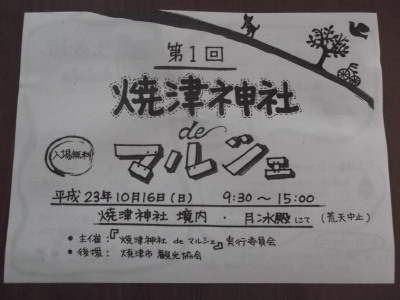 第1回
焼津神社
de
マルシェ
入場無料
平成23年10月16日(日) 9:30〜15:00
焼津神社 境内・月冰殿にて (荒天中止)
• 主催:『焼津神社 de マルシェ』実行委員会
• 後援: 焼津市観光協会